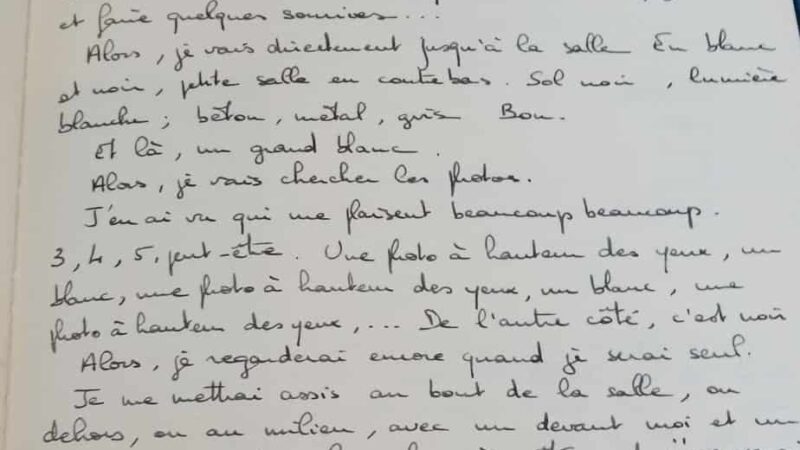 et faire quelques sourires...
Alors, je vais directement jusqu'à la salle En blanc
et noir, petite salle en contrebas. Sol noir, lumière
blanche; béton, métal, gris Bon.
Et là, un grand blanc.
Alors, je vais chercher les photos.
J'en ai vu qui me plaisent beaucoup beaucoup.
3, 4, 5, peut-être. Une photo à hauteur des yeux, un
blanc, une photo à hauteur des yeux, un blanc, une
photo à hauteur des yeux,... De l'autre côté, c'est noir
Alors, je regarderai encore quand je serai seul.
Je me mettrai assis au bout de la salle, ou
dehors, ou au milieu, avec un devant moi et un